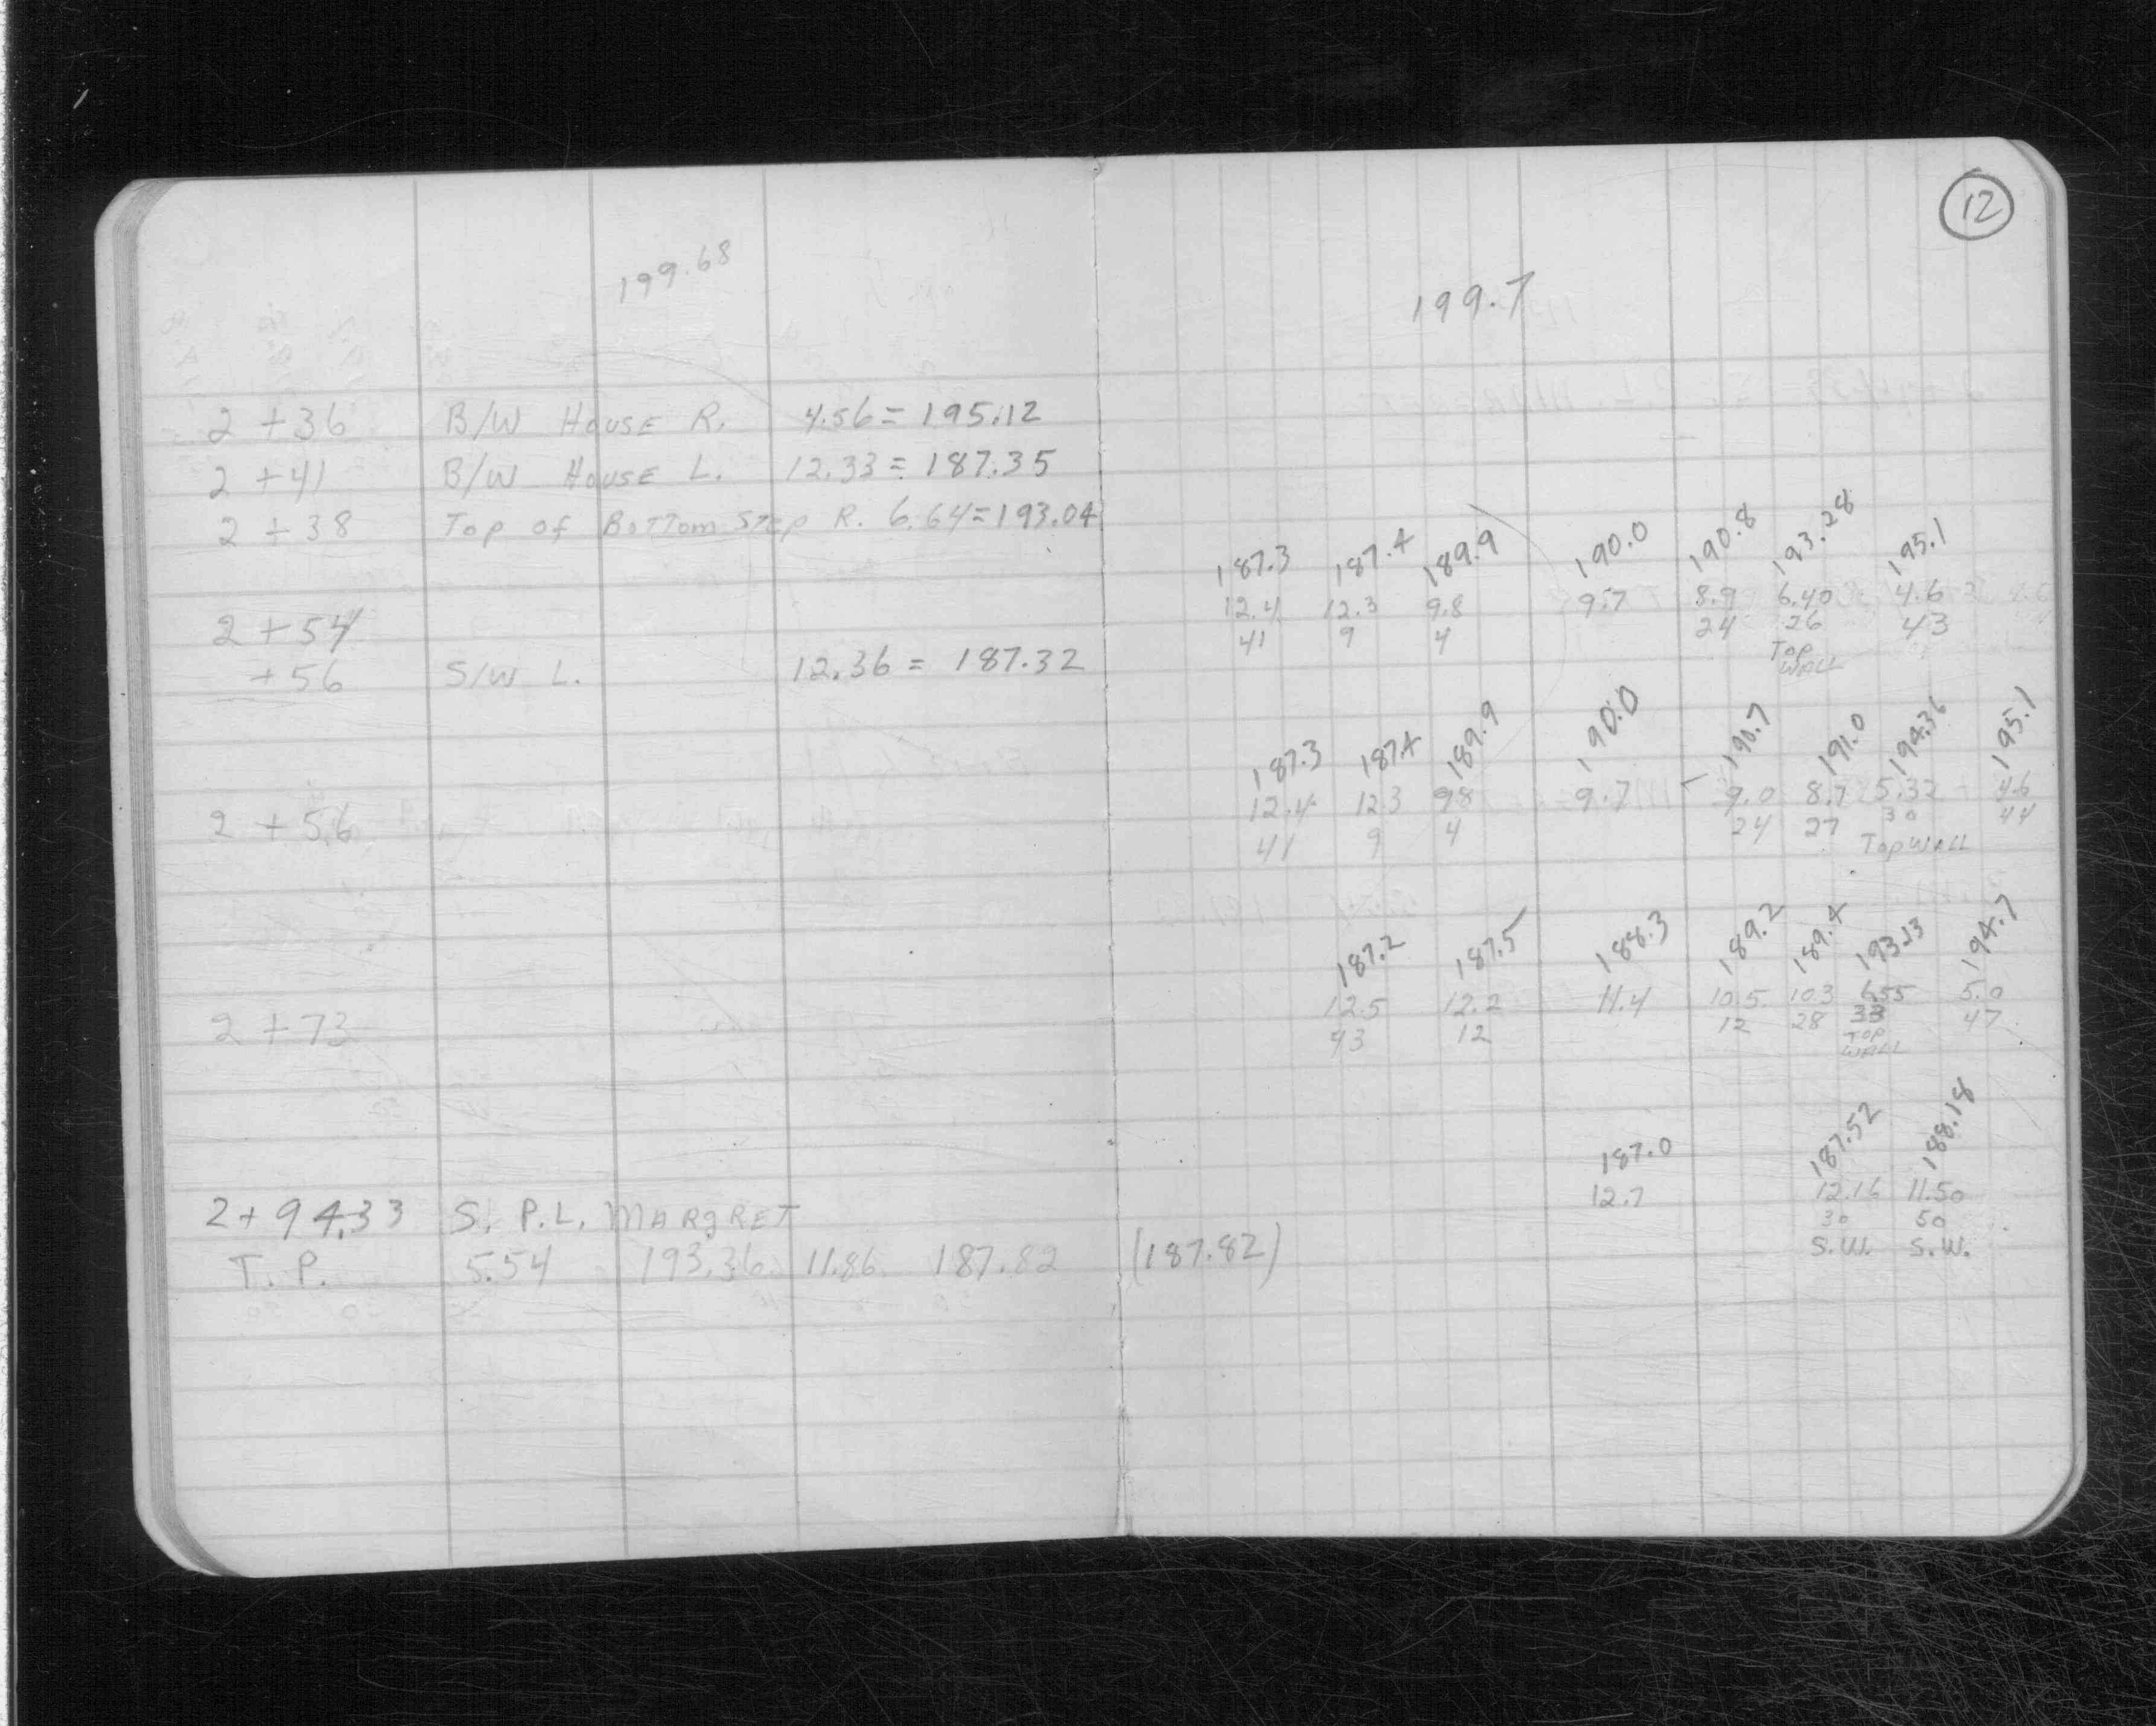 12
199.68
199.7
2+36 B/W HOUSE R. 4.56 = 195.12
2+41 B/W HOUSE L. 12.33 = 187.35
2+38 Top of BOTTOM STEP R. 6.64 = 193.04
187.3 187.4 189.9 190.0 190.8 193.28 195.1
2+54 12.4 12.3 9.8 9.7 8.9 6.40 4.6
41 9 4 24 26 43
TOP
WALL
+56 S/W L. 12.36 = 187.32
187.3 187.4 189.9 190.0 190.7 191.0 194.36 195.1
2+56 12.4 12.3 9.8 9.7 9.0 8.7 5.32 4.6
41 9 4 24 27 30 44
TOP WALL
187.2 187.5 188.3 189.2 189.4 193.13 194.7
2+73 12.5 12.2 11.4 10.5 10.3 6.55 5.0
12 12 28 33 47
TOP
WALL
187.0 187.52 188.18
2+94.33 S. P.L. MARGRET 12.7 12.16 11.50
30 50
S.W. S.W.
T.P. 5.54 193.36 11.86 187.82 (187.82)